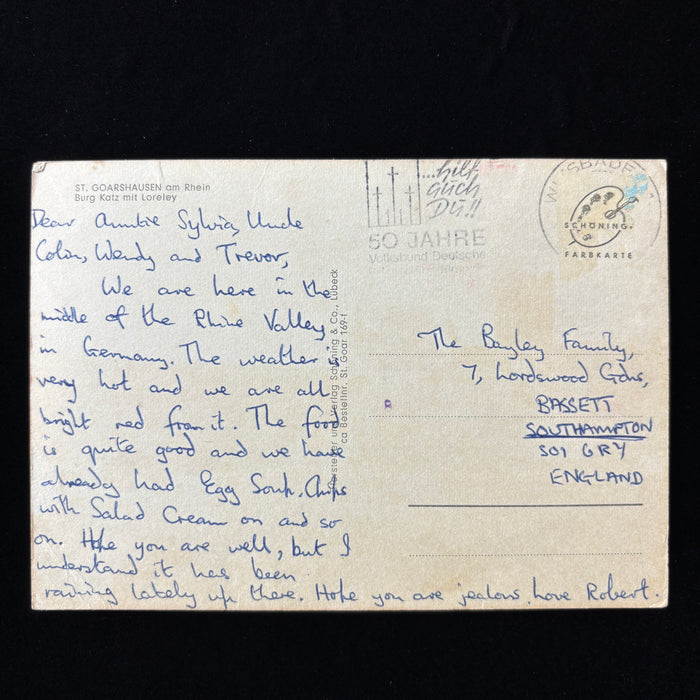 ST. GOARSHAUSEN am Rhein
Burg Katz mit Loreley
Dear Auntie Sylvia, Uncle
Colin, Wendy and Trevor,
We are here in the
middle of the Rhine Valley
in Germany. The weather is
very hot and we are all
bright red from it. The food
is quite good and we have
already had Egg Soup, Chips
with Salad Cream on and so
on. Hope you are well, but I
understand it has been
raining lately up there. Hope you are jealous. Love Robert.
Hersteller und Verlag Schöning & Co., Lübeck
Bestellnr. St. Goar 169-f
...hilf
auch
DU!!
50 JAHRE
Volksbund Deutsche
WIESBADEN
SCHÖNING
FARBKARTE
The Bayley Family,
7, Lordswood Gdns,
BASSETT
SOUTHAMPTON
SO1 6RY
ENGLAND